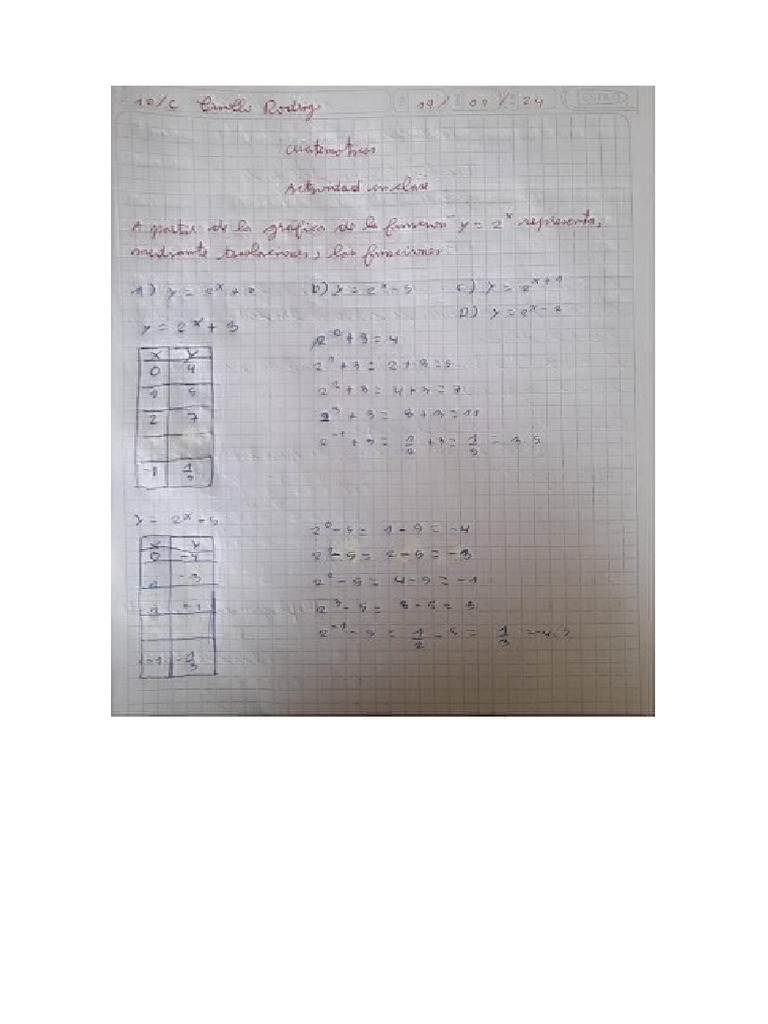 10/C Camilo Rodrig 19/ 09 / 24
Matematicas
Actividad en clase
A partir de la gráfica de la funcion y = 2^x representa,
mediante traslaciones, las funciones:
A) y = 2^x + 3 b) y = 2^x - 5 c) y = 2^x+1
D) y = 2^x-2
y = 2^x + 3 2^0 + 3 = 4
x y 2^1 + 3 = 2 + 3 = 5
0 4 2^2 + 3 = 4 + 3 = 7
1 5 2^3 + 3 = 8 + 3 = 11
2 7 2^-1 + 3 = 1/2 + 3 = 1/3 = 3.5
-1 1/3
y = 2^x - 5 2^0 - 5 = 1 - 5 = -4
x y 2^1 - 5 = 2 - 5 = -3
0 -4 2^2 - 5 = 4 - 5 = -1
-3 2^3 - 5 = 8 - 5 = 3
-1 2^-1 - 5 = 1/2 - 5 = 1/3 = -4.5
-1 -1/3